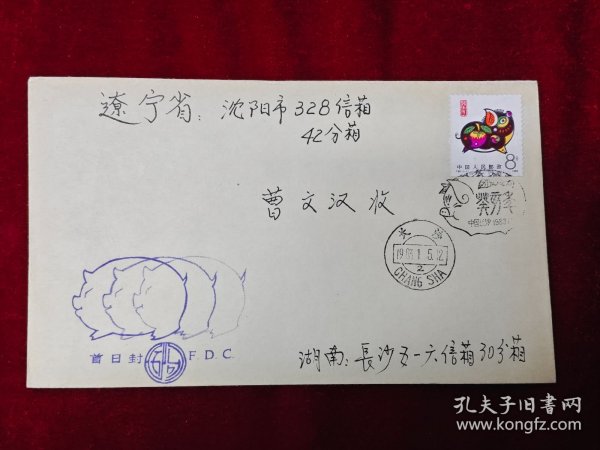 遼宁省：沈阳市328信箱
42分箱
曹文汉 收
8分
中国人民邮政
长沙
1983.1.5.12
2
CHANG SHA
首日封 F.D.C.
湖南：長沙五一六信箱30分箱
孔夫子旧书网
www.kongfz.com